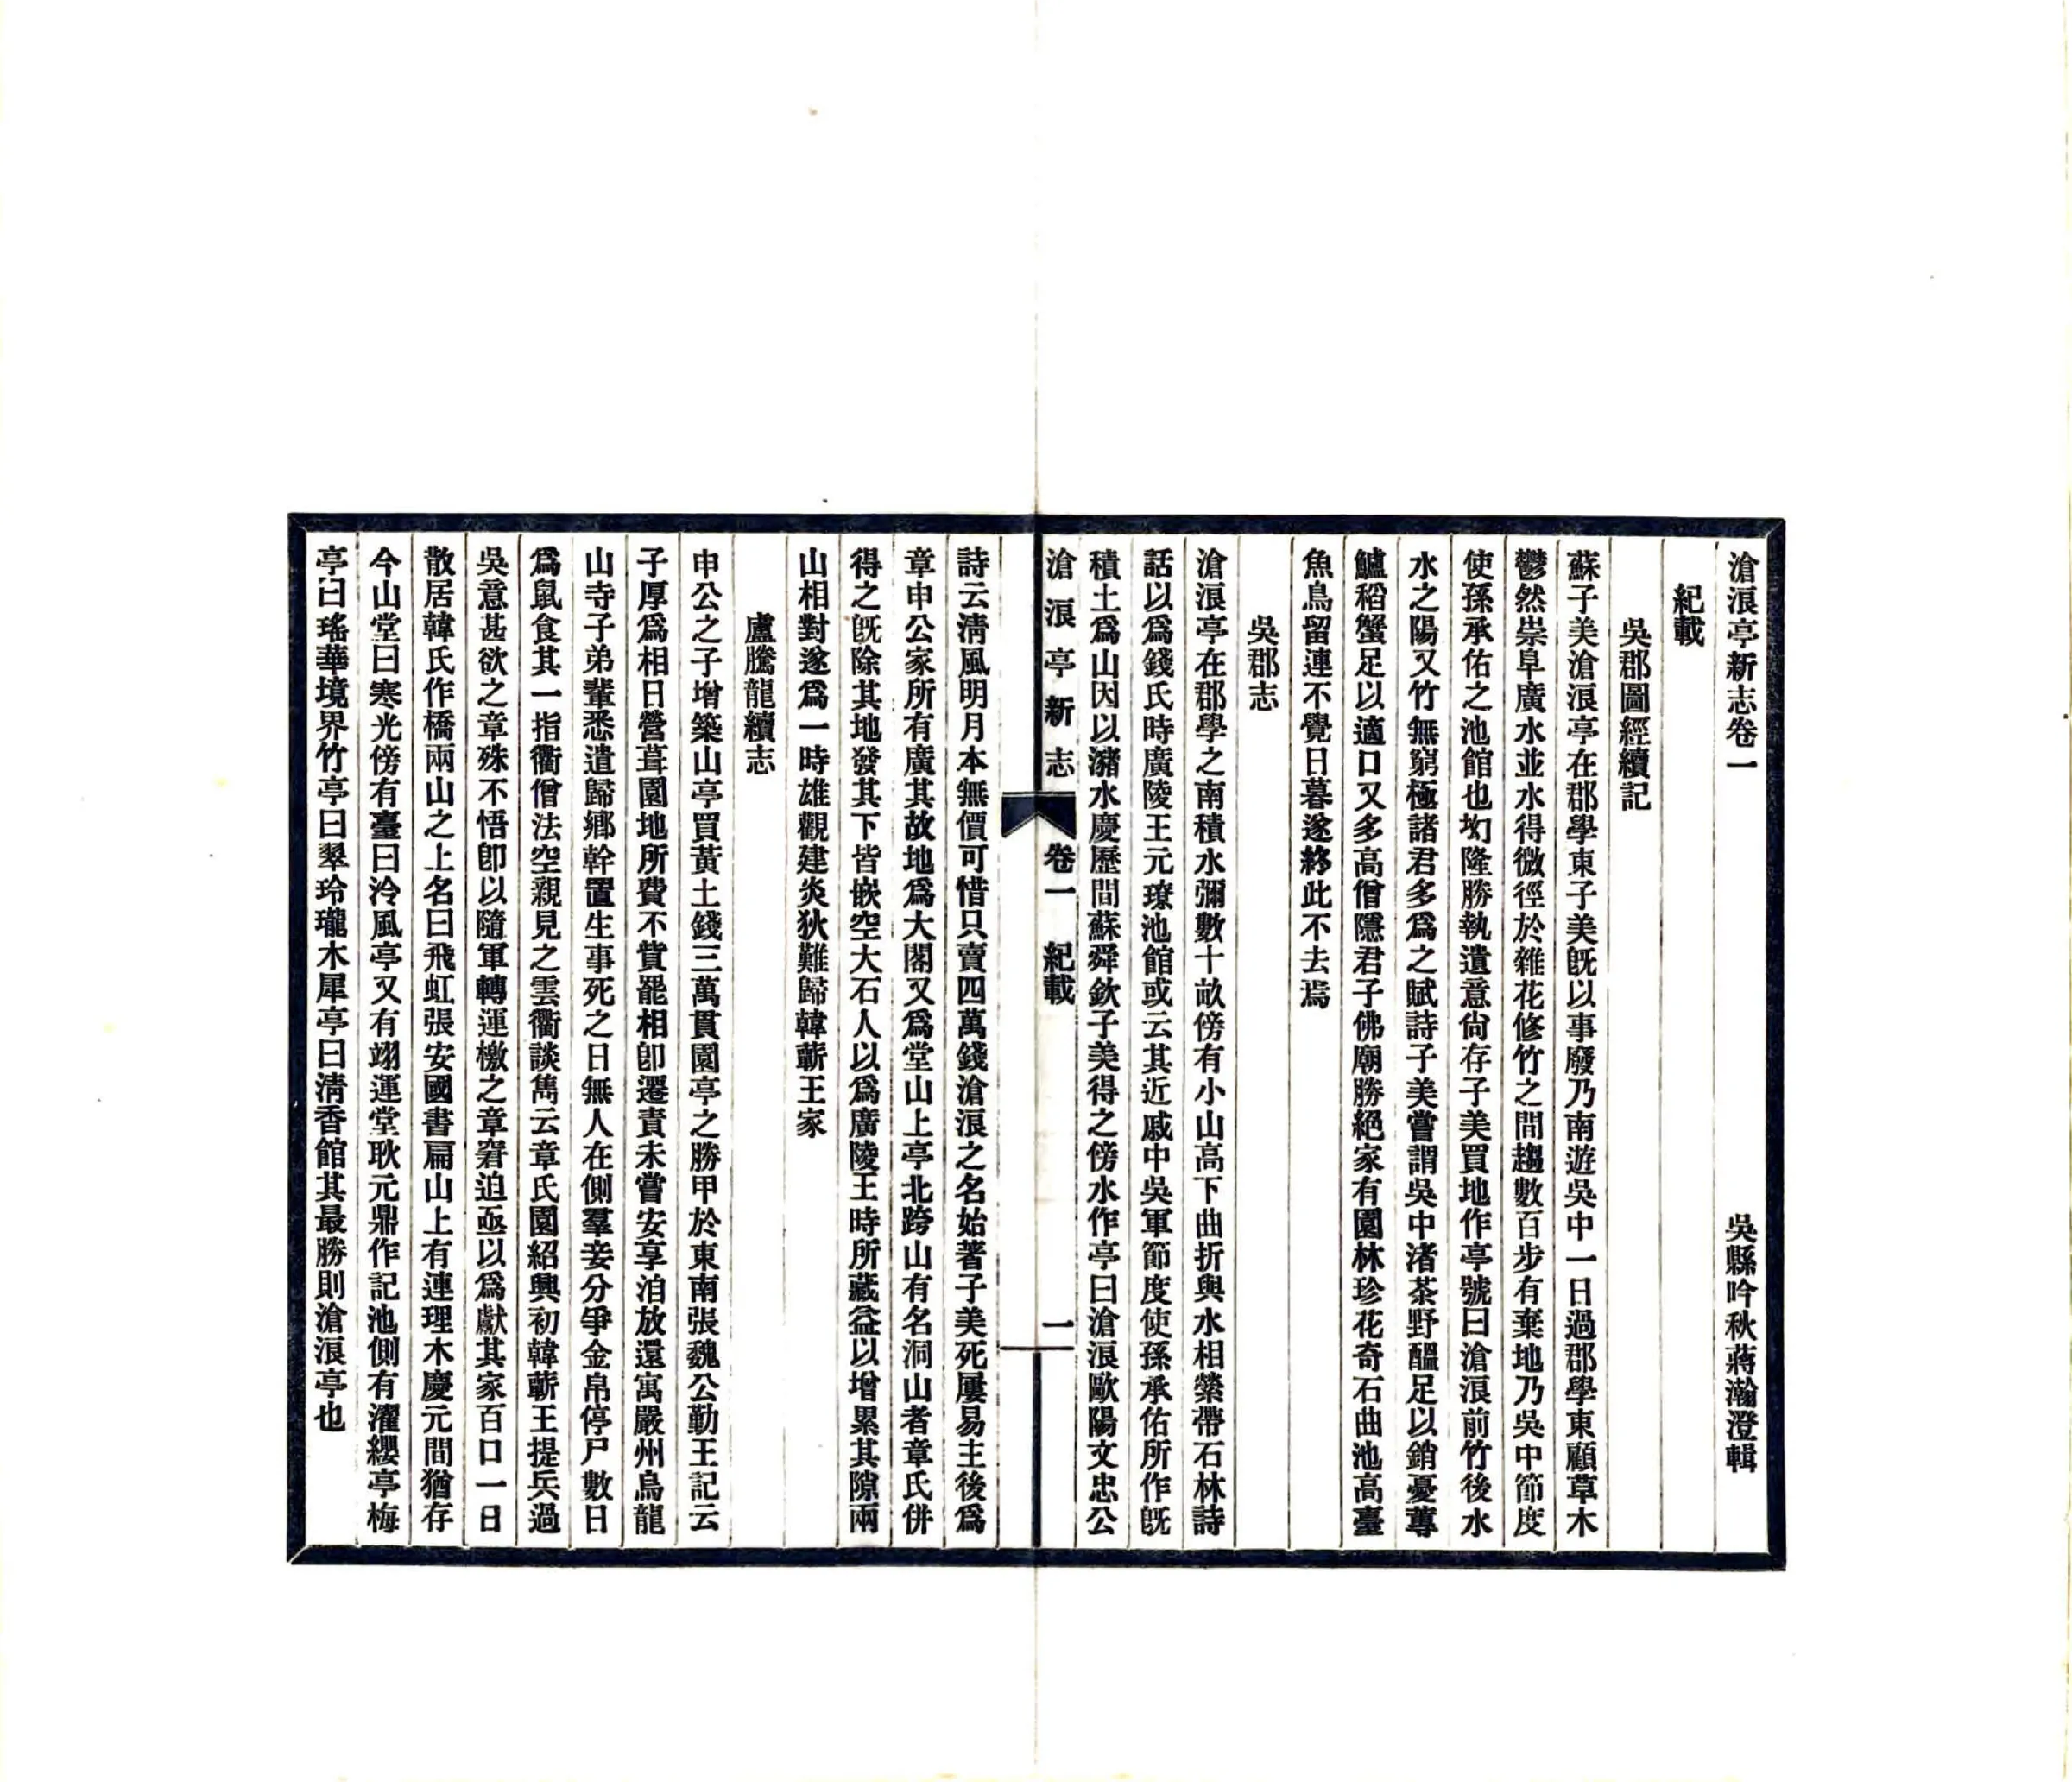 滄浪亭新志卷一　吳縣吟秋蔣瀚澄輯
紀載
吳郡圖經續記
蘇子美滄浪亭在郡學東子美旣以事廢乃南遊吳中一日過郡學東顧草木
鬱然崇阜廣水並水得微徑於雜花修竹之間趨數百步有棄地乃吳中節度
使孫承佑之池館也坳隆勝執遺意尙存子美買地作亭號曰滄浪前竹後水
水之陽又竹無窮極諸君多爲之賦詩子美嘗謂吳中渚茶野醞足以銷憂蓴
鱸稻蟹足以適口又多高僧隱君子佛廟勝絕家有園林珍花奇石曲池高臺
魚鳥留連不覺日暮遂終此不去焉
吳郡志
滄浪亭在郡學之南積水彌數十畝傍有小山高下曲折與水相縈帶石林詩
話以爲錢氏時廣陵王元璙池館或云其近戚中吳軍節度使孫承佑所作旣
積土爲山因以瀦水慶歷間蘇舜欽子美得之傍水作亭曰滄浪歐陽文忠公
滄浪亭新志　卷一　紀載　一
詩云淸風明月本無價可惜只賣四萬錢滄浪之名始著子美死屢易主後爲
章申公家所有廣其故地爲大閣又爲堂山上亭北跨山有名洞山者章氏併
得之旣除其地發其下皆嵌空大石人以爲廣陵王時所藏益以增累其隙兩
山相對遂爲一時雄觀建炎狄難歸韓蘄王家
盧騰龍續志
申公之子增築山亭買黃土錢三萬貫園亭之勝甲於東南張魏公勤王記云
子厚爲相日營葺園地所費不貲罷相卽遷責未嘗安享洎放還寓嚴州烏龍
山寺子弟輩悉遣歸鄕幹置生事死之日無人在側羣妾分爭金帛停尸數日
爲鼠食其一指衢僧法空親見之雲衢談雋云章氏園紹興初韓蘄王提兵過
吳意甚欲之章殊不悟卽以隨軍轉運檄之章窘迫亟以爲獻其家百口一日
散居韓氏作橋兩山之上名曰飛虹張安國書扁山上有連理木慶元間猶存
今山堂曰寒光傍有臺曰泠風亭又有翊運堂耿元鼎作記池側有濯纓亭梅
亭曰瑤華境界竹亭曰翠玲瓏木犀亭曰淸香館其最勝則滄浪亭也